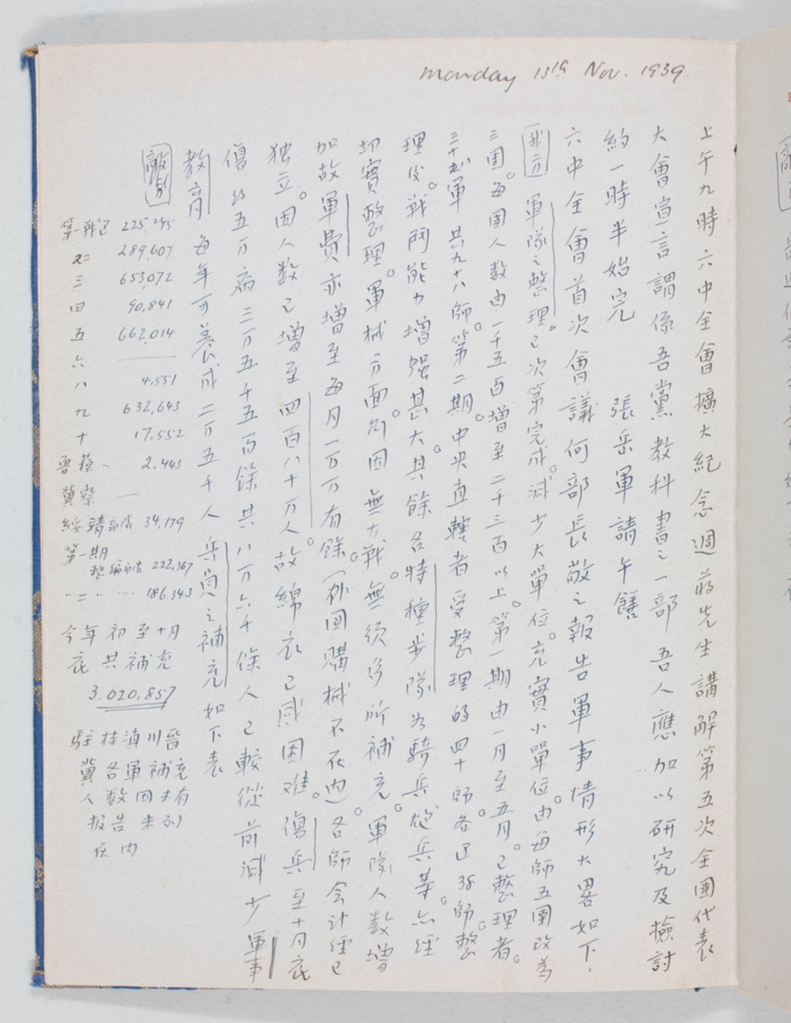 Monday 13th Nov. 1939
上午九時六中全會擴大紀念週蔣先生講解第五次全國代表
大會宣言謂係吾黨教科書之一部吾人應加以研究及檢討
約一時半始完 張岳軍請午饍
六中全會首次會議何部長敬之報告軍事情形大畧如下.
我方 軍隊之整理已次第完成。減少大單位。充實小單位。由每師五團改為
三團。每團人數由一千五百增至二千三百以上。第一期由一月至五月。已整理者。
三十五軍共九十八師。第二期。中央直轄者受整理的四十師
理後。戰鬥能力增強甚大。其餘各特種步隊為騎兵砲兵等。亦經
切實整理。軍械方面。因無大戰。無須多所補充。軍隊人數增
加故軍費亦增至每月一万万有餘。(外国購械不在內)各師会計經已
独立。因人數已增至四百八十万人。故綿衣已感困难。傷兵至十月底
傷 五万病三万五千五百餘共八万六千餘人已較從前減少 軍事
教育 每年可養成二万五千人 兵員之補充如下表
敵
第一戰区 225,245
二 289,607
三 653,072
四 90,841
五 662,014
六 —
八 4,551
九 632,643
十 17,552
魯 2,443
冀察 —
綏靖部份 34,179
第一期
整編部份 222,367
〃二〃 186,343
今年初至十月
底共補充
3,020,857
駐桂滇川晉
冀各軍補充
人數因未有
報告未列
在內